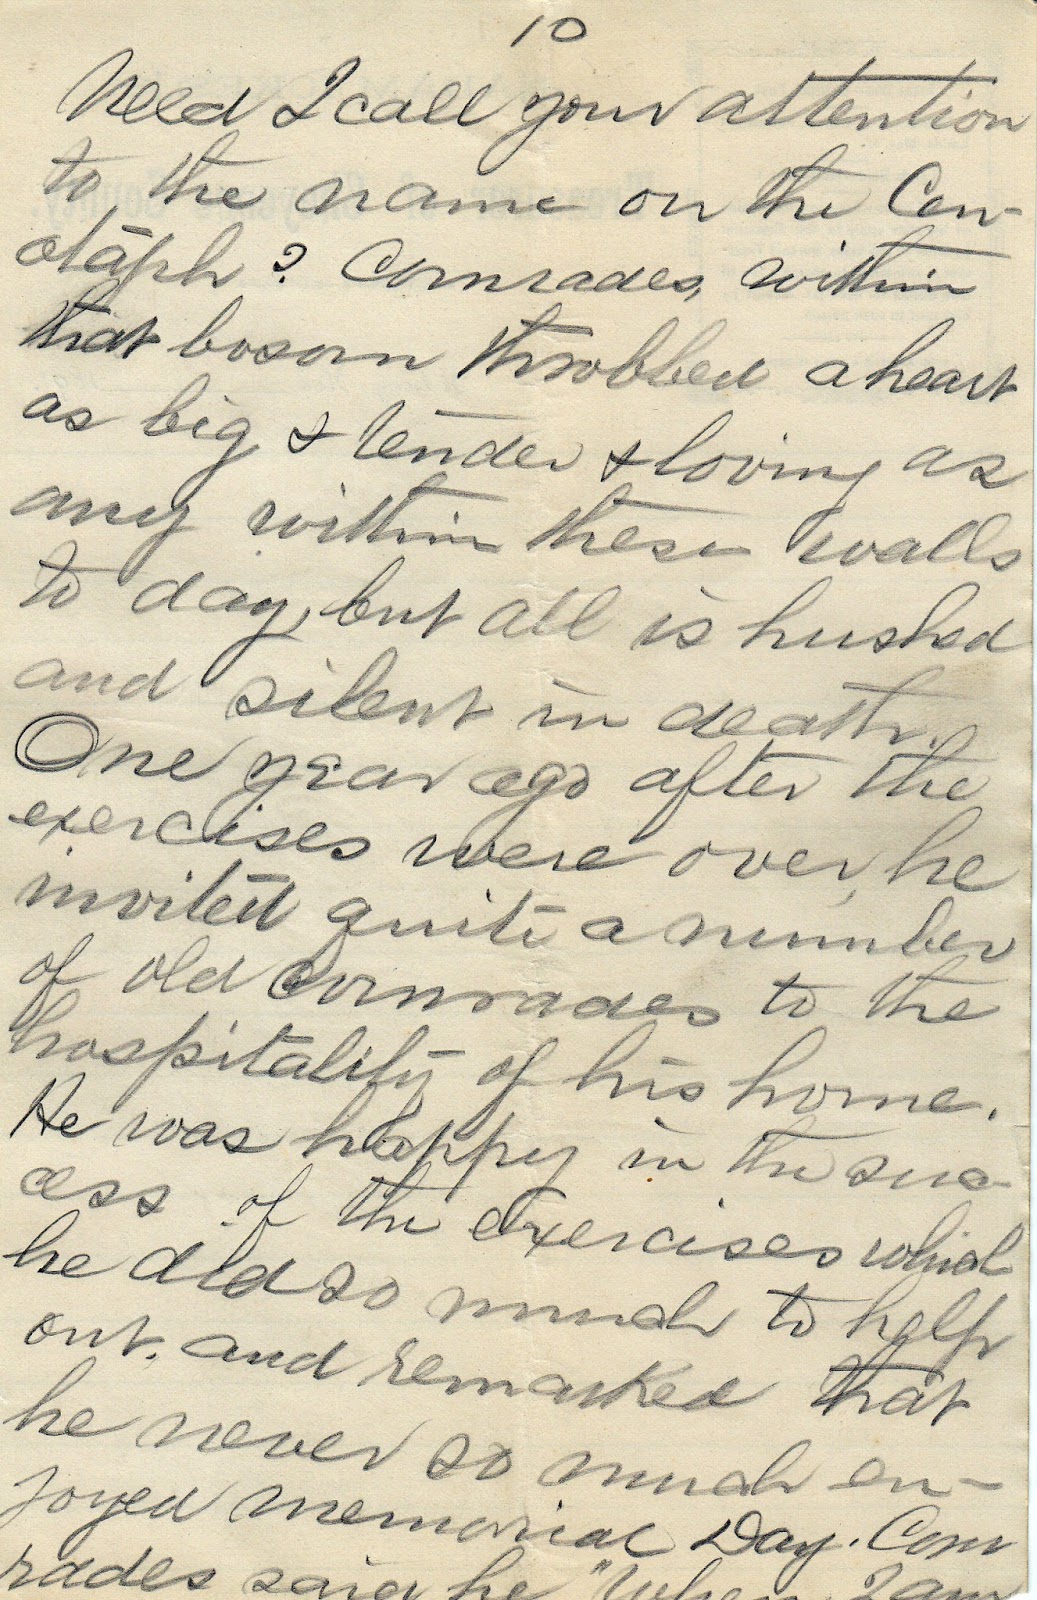 10
Need I call your attention
to the name on the Cen-
otaph? Comrades, within
that bosom throbbed a heart
as big & tender & loving as
any within these walls
to day, but all is hushed
and silent in death.
One year ago after the
exercises were over, he
invited quite a number
of old comrades to the
hospitality of his home.
He was happy in the suc-
cess of the exercises which
he did so much to help
out. and remarked that
he never so much en-
joyed memorial Day. Com
rades said he "When I am